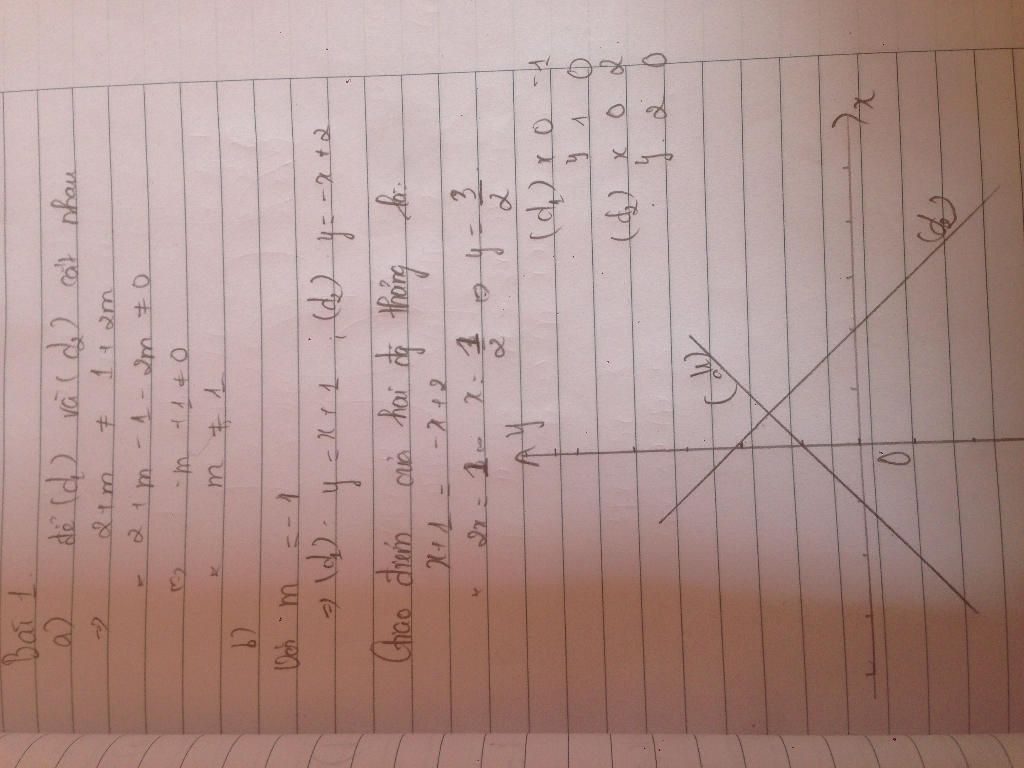 Bài 1
a) để (d1) và (d2) cắt nhau
=> 2+m ≠ 1+2m
= 2+m-1-2m ≠ 0
<=> -m+1≠0
m ≠ 1
b)
Với m = -1
=> (d1). y = x+1, (d2) y = -x+2
Giao điểm của hai đg thẳng là:
x+1 = -x+2
2x = 1 x = 1/2 => y = 3/2
(d1) x 0 -1
y 1 0
(d2) x 0 2
y 2 0
y
(d1)
(d2)
x
O